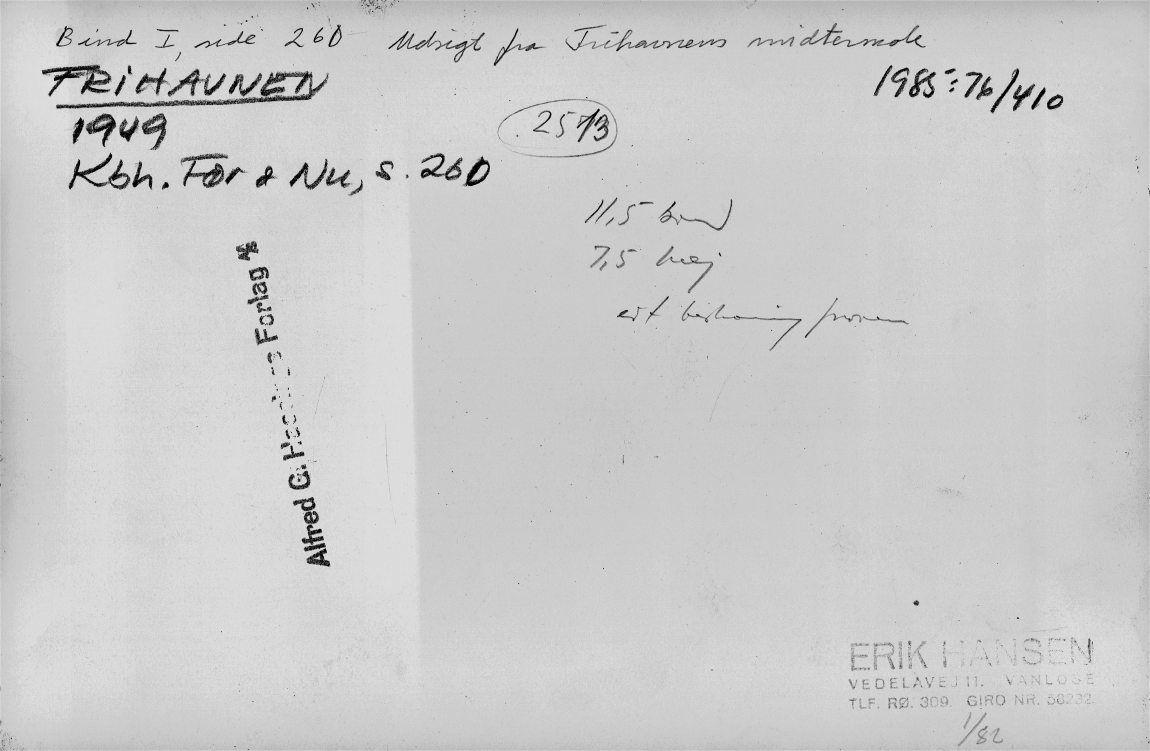 Bind I, side 260 Udsigt fra Frihavnens midtermole
FRIHAVNEN
1985:76/410
1949
2573
Kbh. Før & Nu, s. 260
11,5 bred
7,5 høj
Alfred G. Forlag
ERIK HANSEN
VEDELAVEJ 11. VANLØSE
TLF. RØ. 309. GIRO NR.
1/82